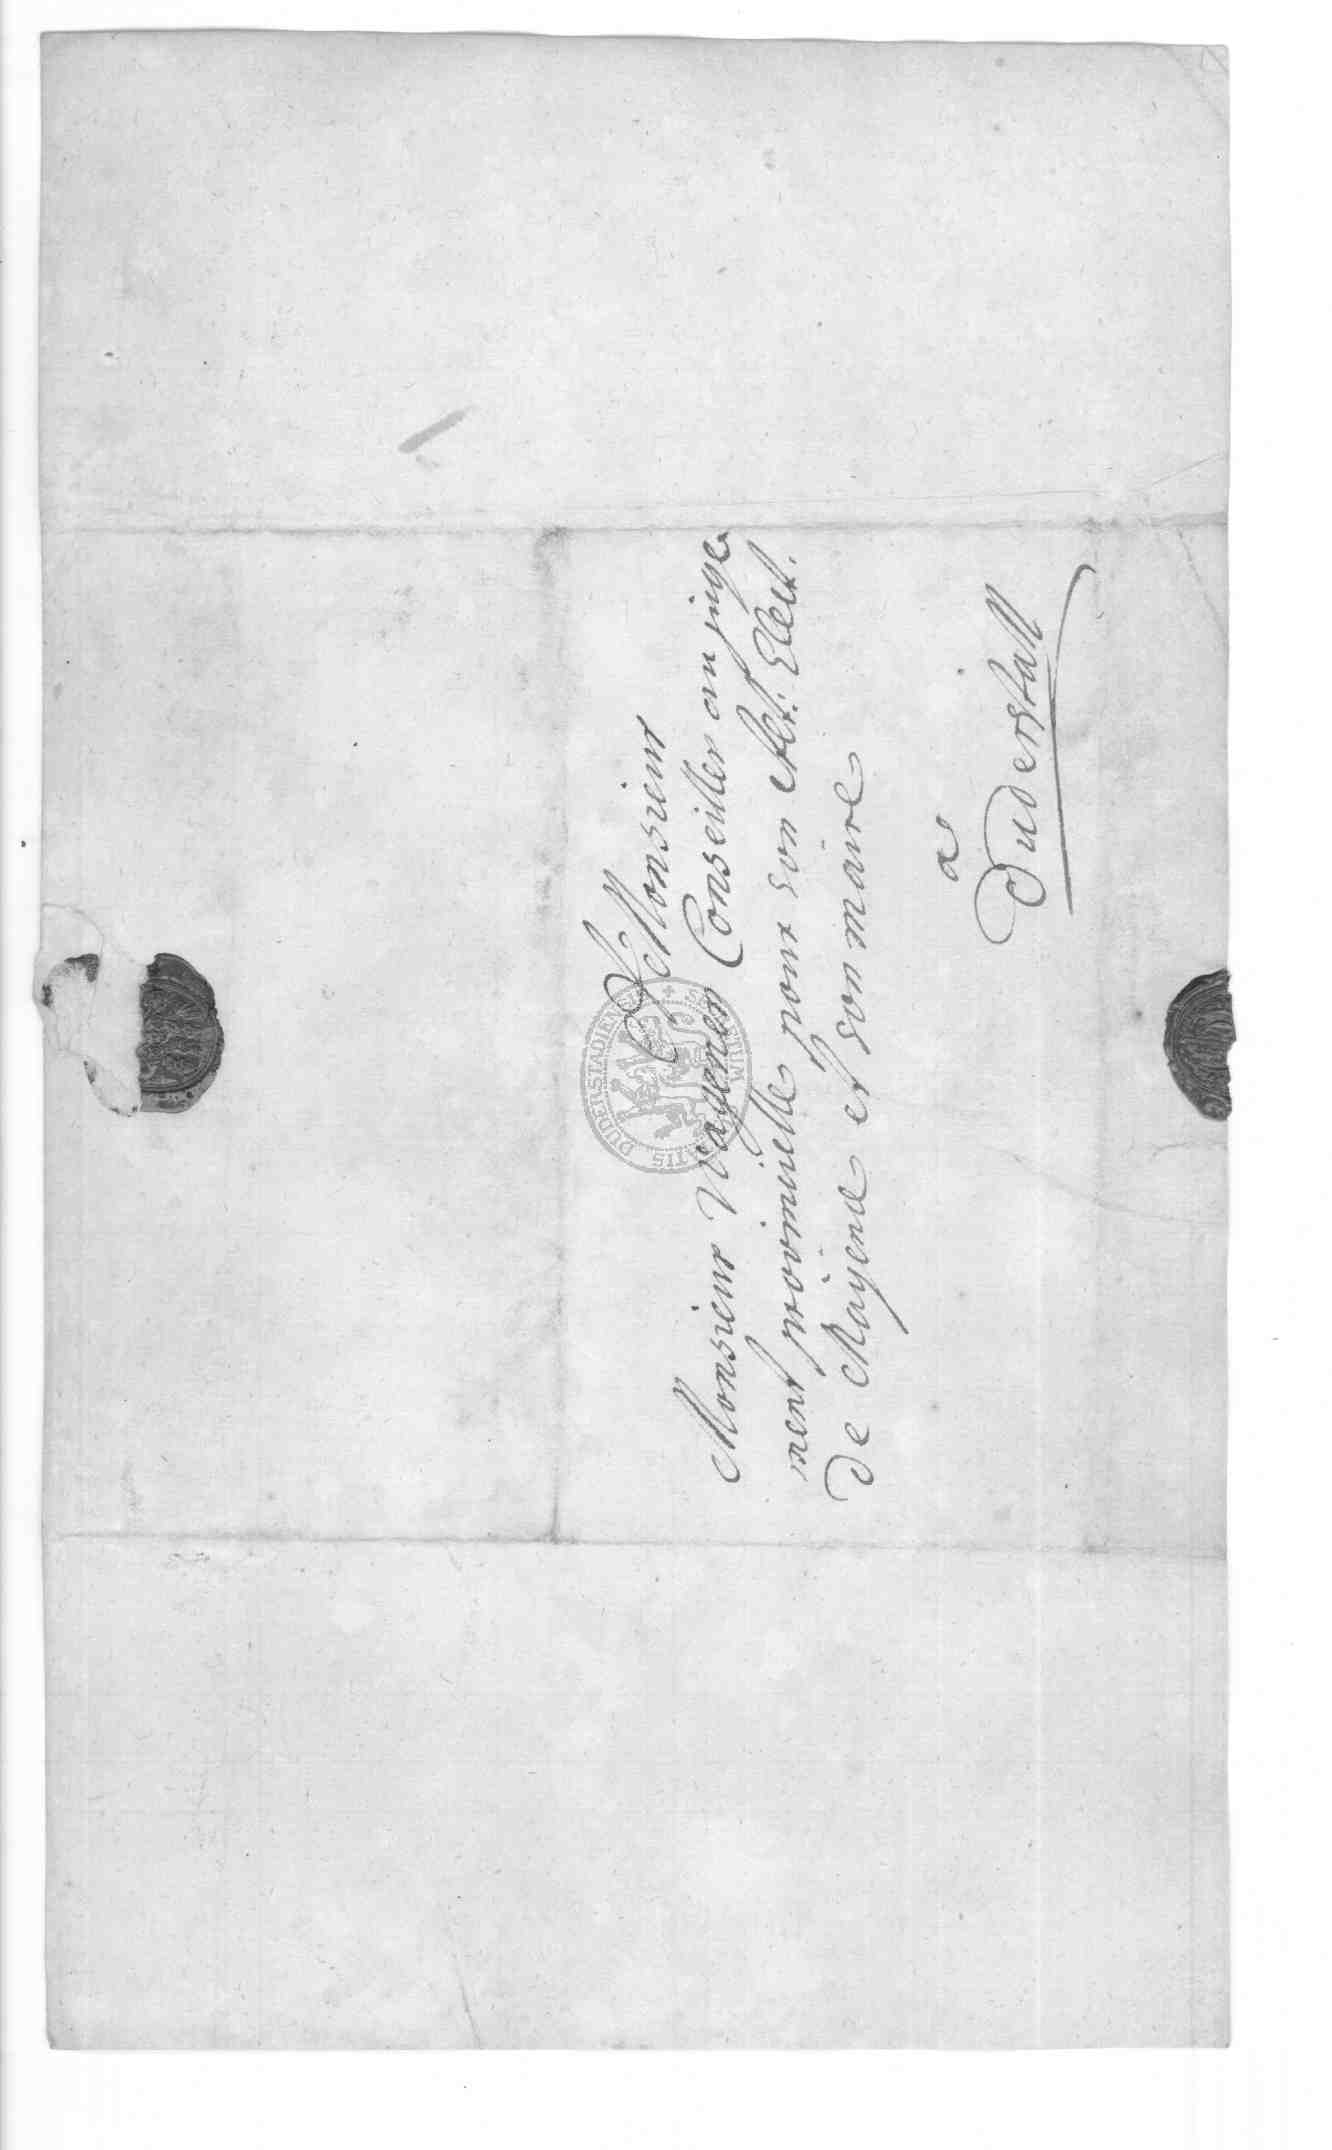 A Monsieur
Monsieur Wagener Conseiller au juge
ment provincielle pour son Alt: Elect.
de Mayence et son maire
à
Duderstatt